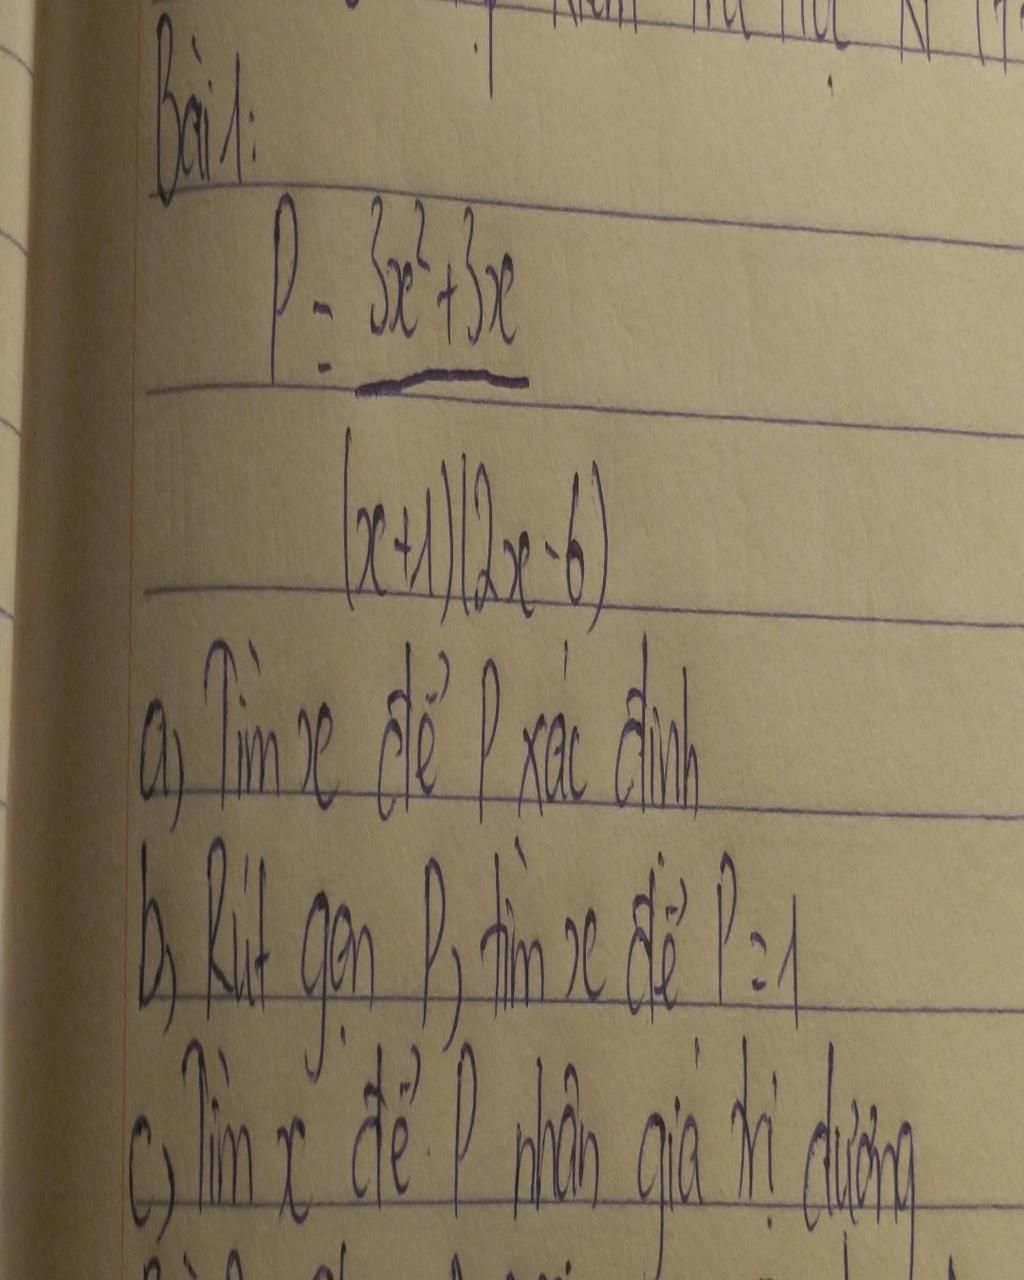 Bài 1:
P = 3x² + 3x
(x+1)(2x-6)
a, Tìm x để P xác định
b, Rút gọn P, tìm x để P = 1
c, Tìm x để P nhận giá trị dương